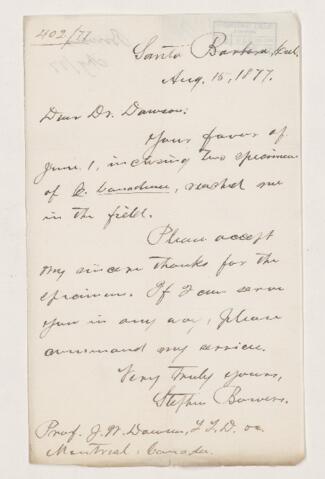 402/77
Santa Barbara, Cal.
Aug. 15, 1877.
Dear Dr. Dawson:
Your favor of
June 1, inclosing two specimens
of E. Canadense, reached me
in the field.
Please accept
my sincere thanks for the
specimens. If I can serve
you in any way, please
command my service.
Very Truly yours,
Stephen Bowers.
Prof. J. W. Dawson, LL.D.
Montreal, Canada.